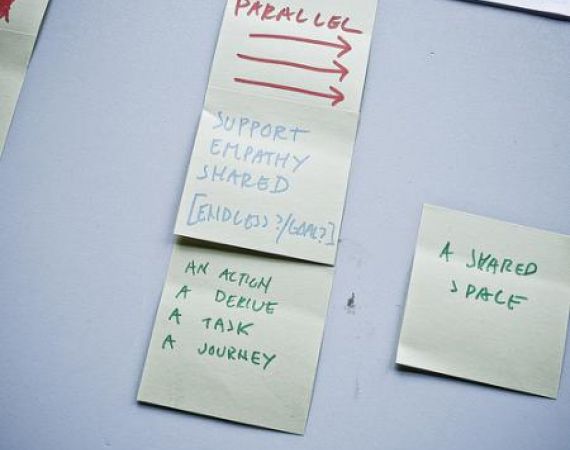 PARALLEL
SUPPORT
EMPATHY
SHARED
[ENDLESS?/GOAL?]
AN ACTION
A DERIVE
A TASK
A JOURNEY
A SHARED
SPACE